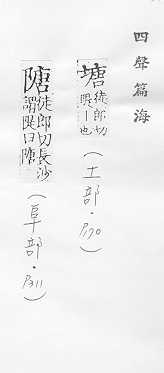 四聲篇海
塘徒郎切
隄丨也
(土部·P.170)
隚徒郎切長沙
謂隄曰隚
(阜部·P.311)